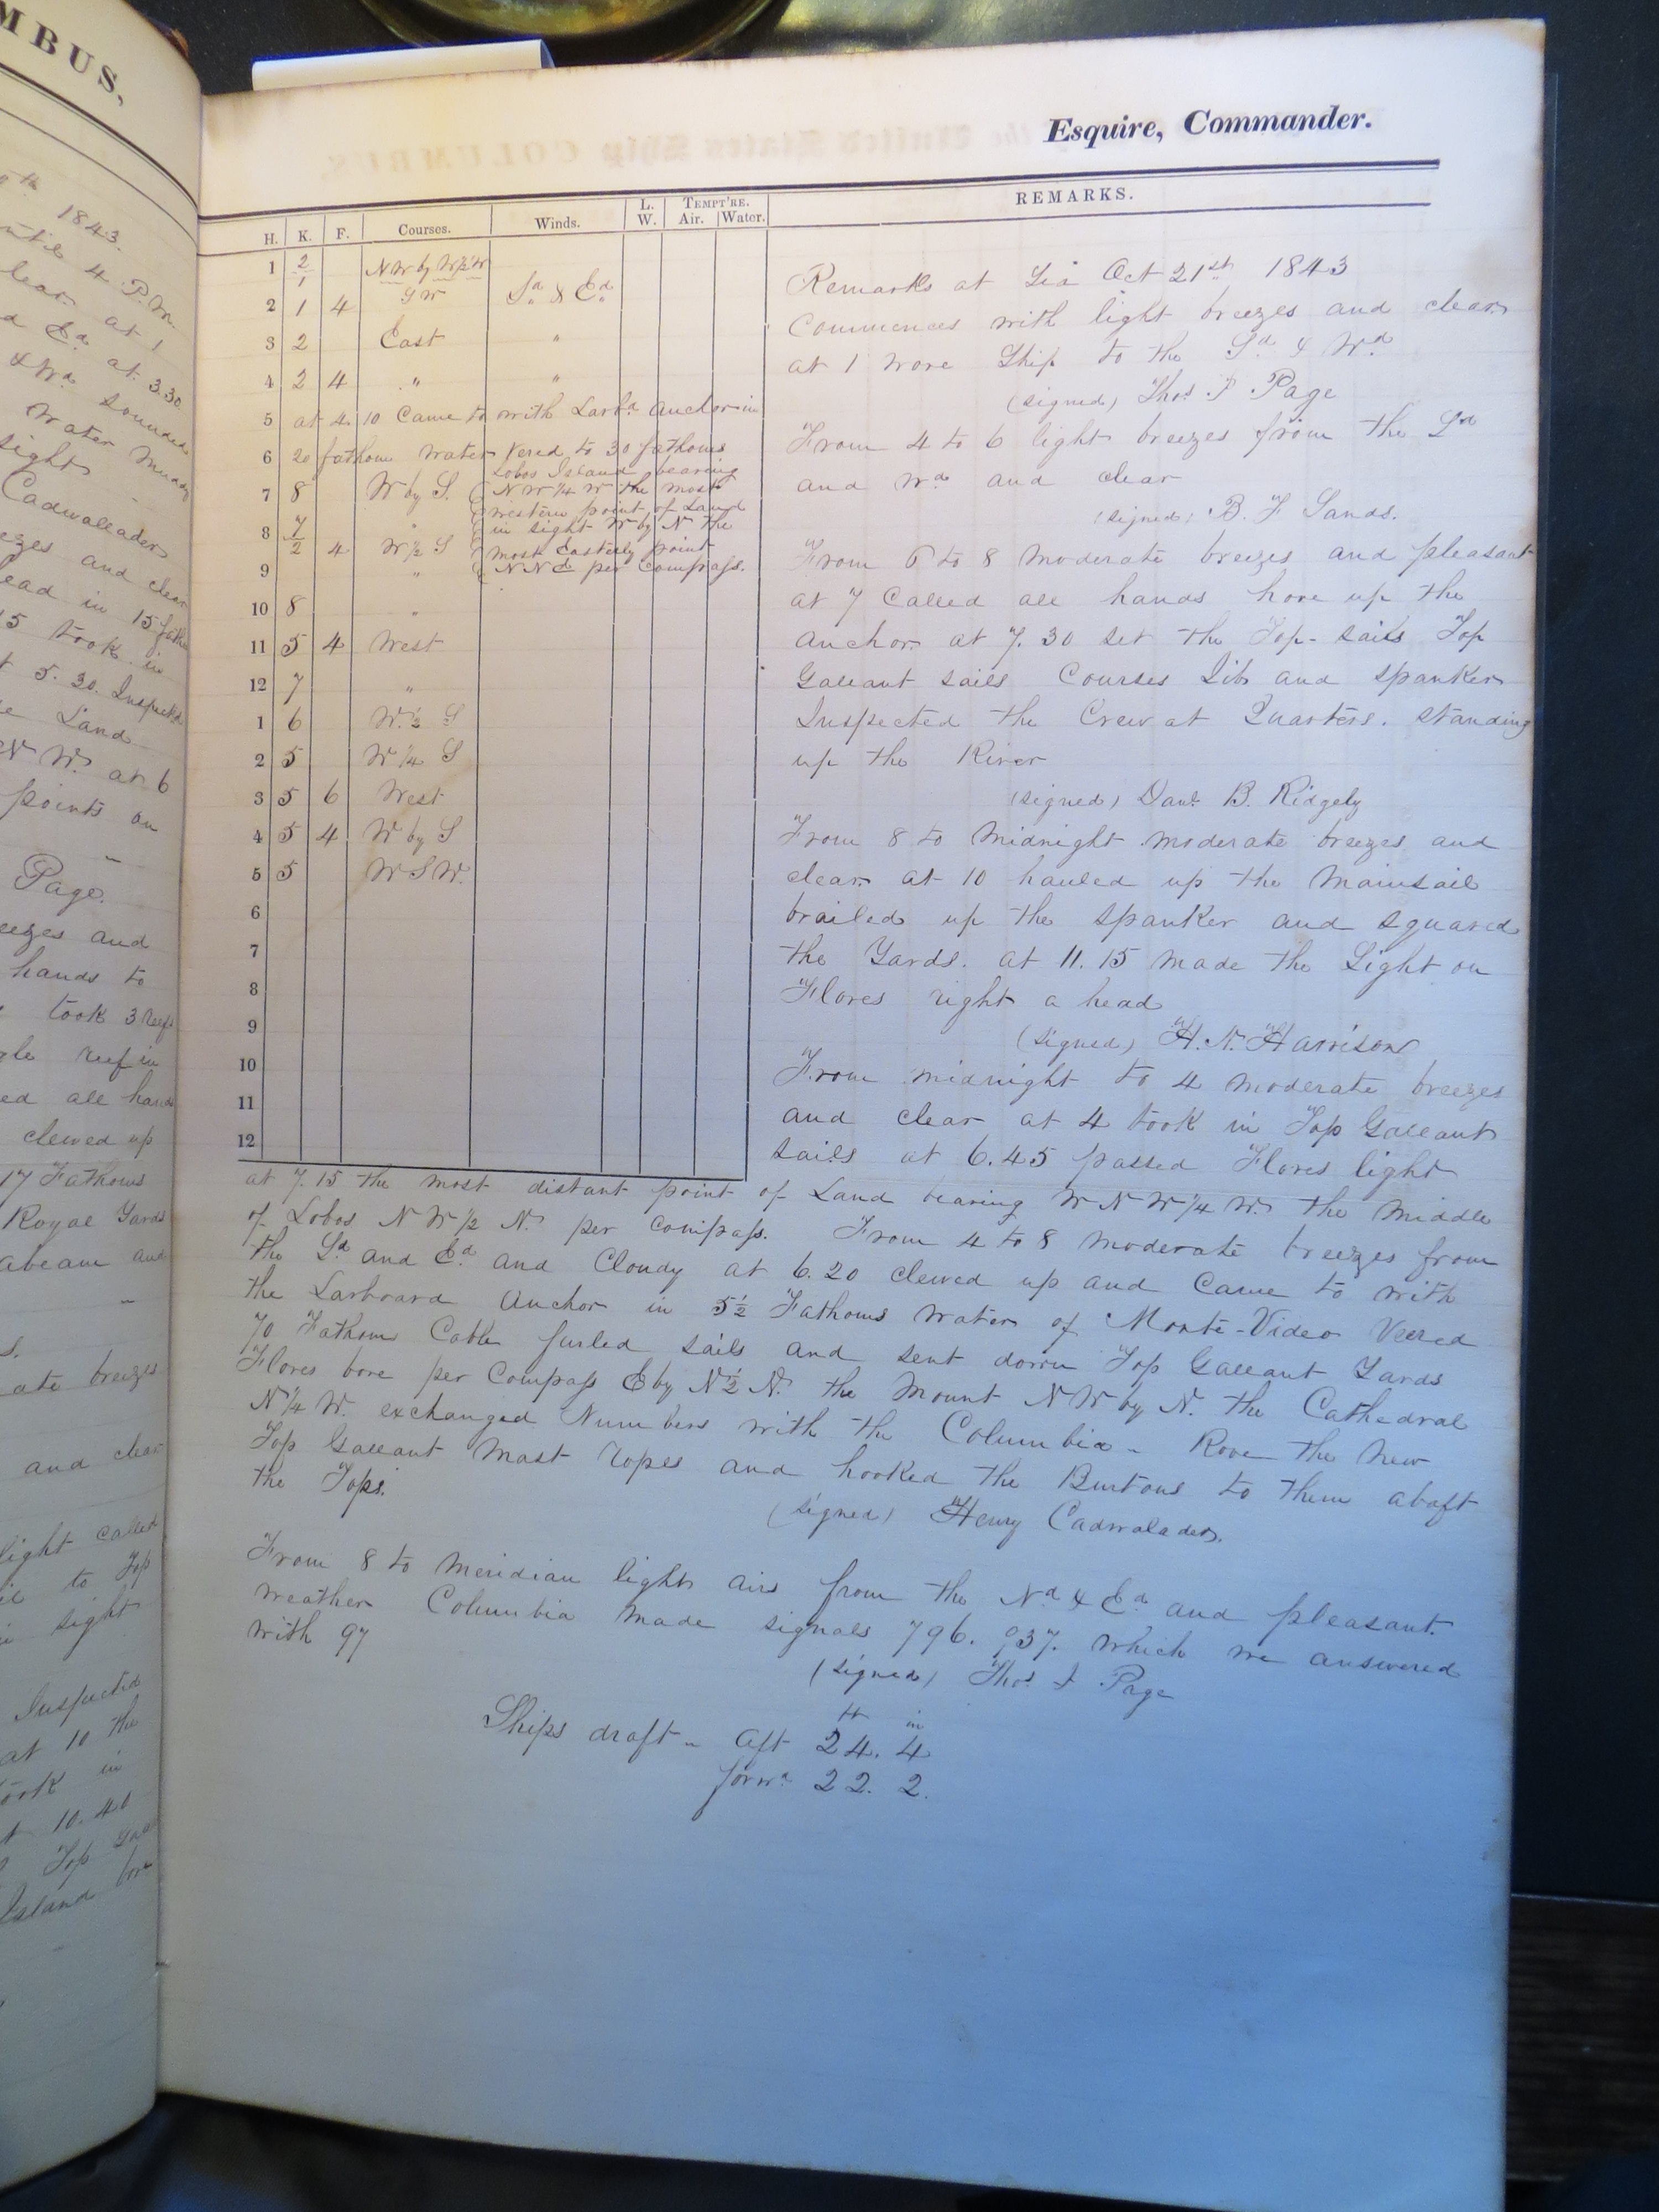 MBUS,
1843.
until 4 P.M.
clear at 1
Ed at 3.30
& Wd sounded
Water muddy
sight
Cadwalader
and clear
lead in 15 fath
15 took in
5.30. Inspected
Land
N W. at 6
points on
Page.
and
hands to
took 3 reefs
reef in
all hands
clewed up
17 Fathoms
Royal Yards
abeam and
breezes
and clear
light called
to Top
in sight
Inspected
at 10 the
took in
10.40
Top Gall
Island bore
Esquire, Commander.
H. K. F. Courses. Winds. L. W. TEMPT'RE. Air. Water. REMARKS.
1 2/1 NW by W½W
2 1 4 SW Sd & Ed
3 2 East "
4 2 4 " "
5 at 4.10 Came to with Larbd Anchor in
6 20 fathom water Vered to 30 fathoms
Lobos Island bearing
7 8 W by S. NW ¼ W the most
western point of Land
8 7/2 4 W ½ S in sight W by N the
most Easterly point
9 " NNE per Compass.
10 8 "
11 5 4 West
12 7 "
1 6 W. ½ S
2 5 W ¼ S
3 5 6 West
4 5 4 W by S
5 5 WSW.
6
7
8
9
10
11
12
Remarks at Sea Oct 21st 1843
Commences with light breezes and clear
at 1 wore Ship to the Sd & Wd
(signed) Thos J Page
From 4 to 6 light breezes from the Sd
and Wd and clear
(signed) B. F Sands.
From 6 to 8 moderate breezes and pleasant
at 7 Called all hands hove up the
anchor at 7.30 set the Top-sails Top
Gallant sails Courses Jib and spanker
Inspected the Crew at Quarters. standing
up the River
(signed) Danl B. Ridgely
From 8 to Midnight moderate breezes and
clear at 10 hauled up the Mainsail
brailed up the spanker and squared
the Yards. at 11.15 made the Light on
Flores right a head
(signed) H. N. Harrison
From midnight to 4 moderate breezes
and clear at 4 took in Top Gallant
sails at 6.45 passed Flores light
at 7.15 the most distant point of Land bearing W N W ¼ W. the middle
of Lobos N W ½ N. per compass. From 4 to 8 moderate breezes from
the Sd and Ed and Cloudy at 6.20 clewed up and Came to with
the Larboard Anchor in 5½ Fathoms water of Monte-Video Veered
70 Fathoms Cable furled sails and sent down Top Gallant Yards
Flores bore per Compass E by N ½ N. the Mount NW by N. the Cathedral
N ¼ W. exchanged Numbers with the Columbia - Rove the new
Top Gallant Mast ropes and hooked the Burtons to them abaft
the Tops.
(signed) Henry Cadwalader.
From 8 to Meridian light airs from the Nd & Ed and pleasant
weather Columbia made signals 796. 937. which we answered
with 97
(signed) Thos J Page
ft in
Ships draft - aft 24. 4
forwd 22. 2.